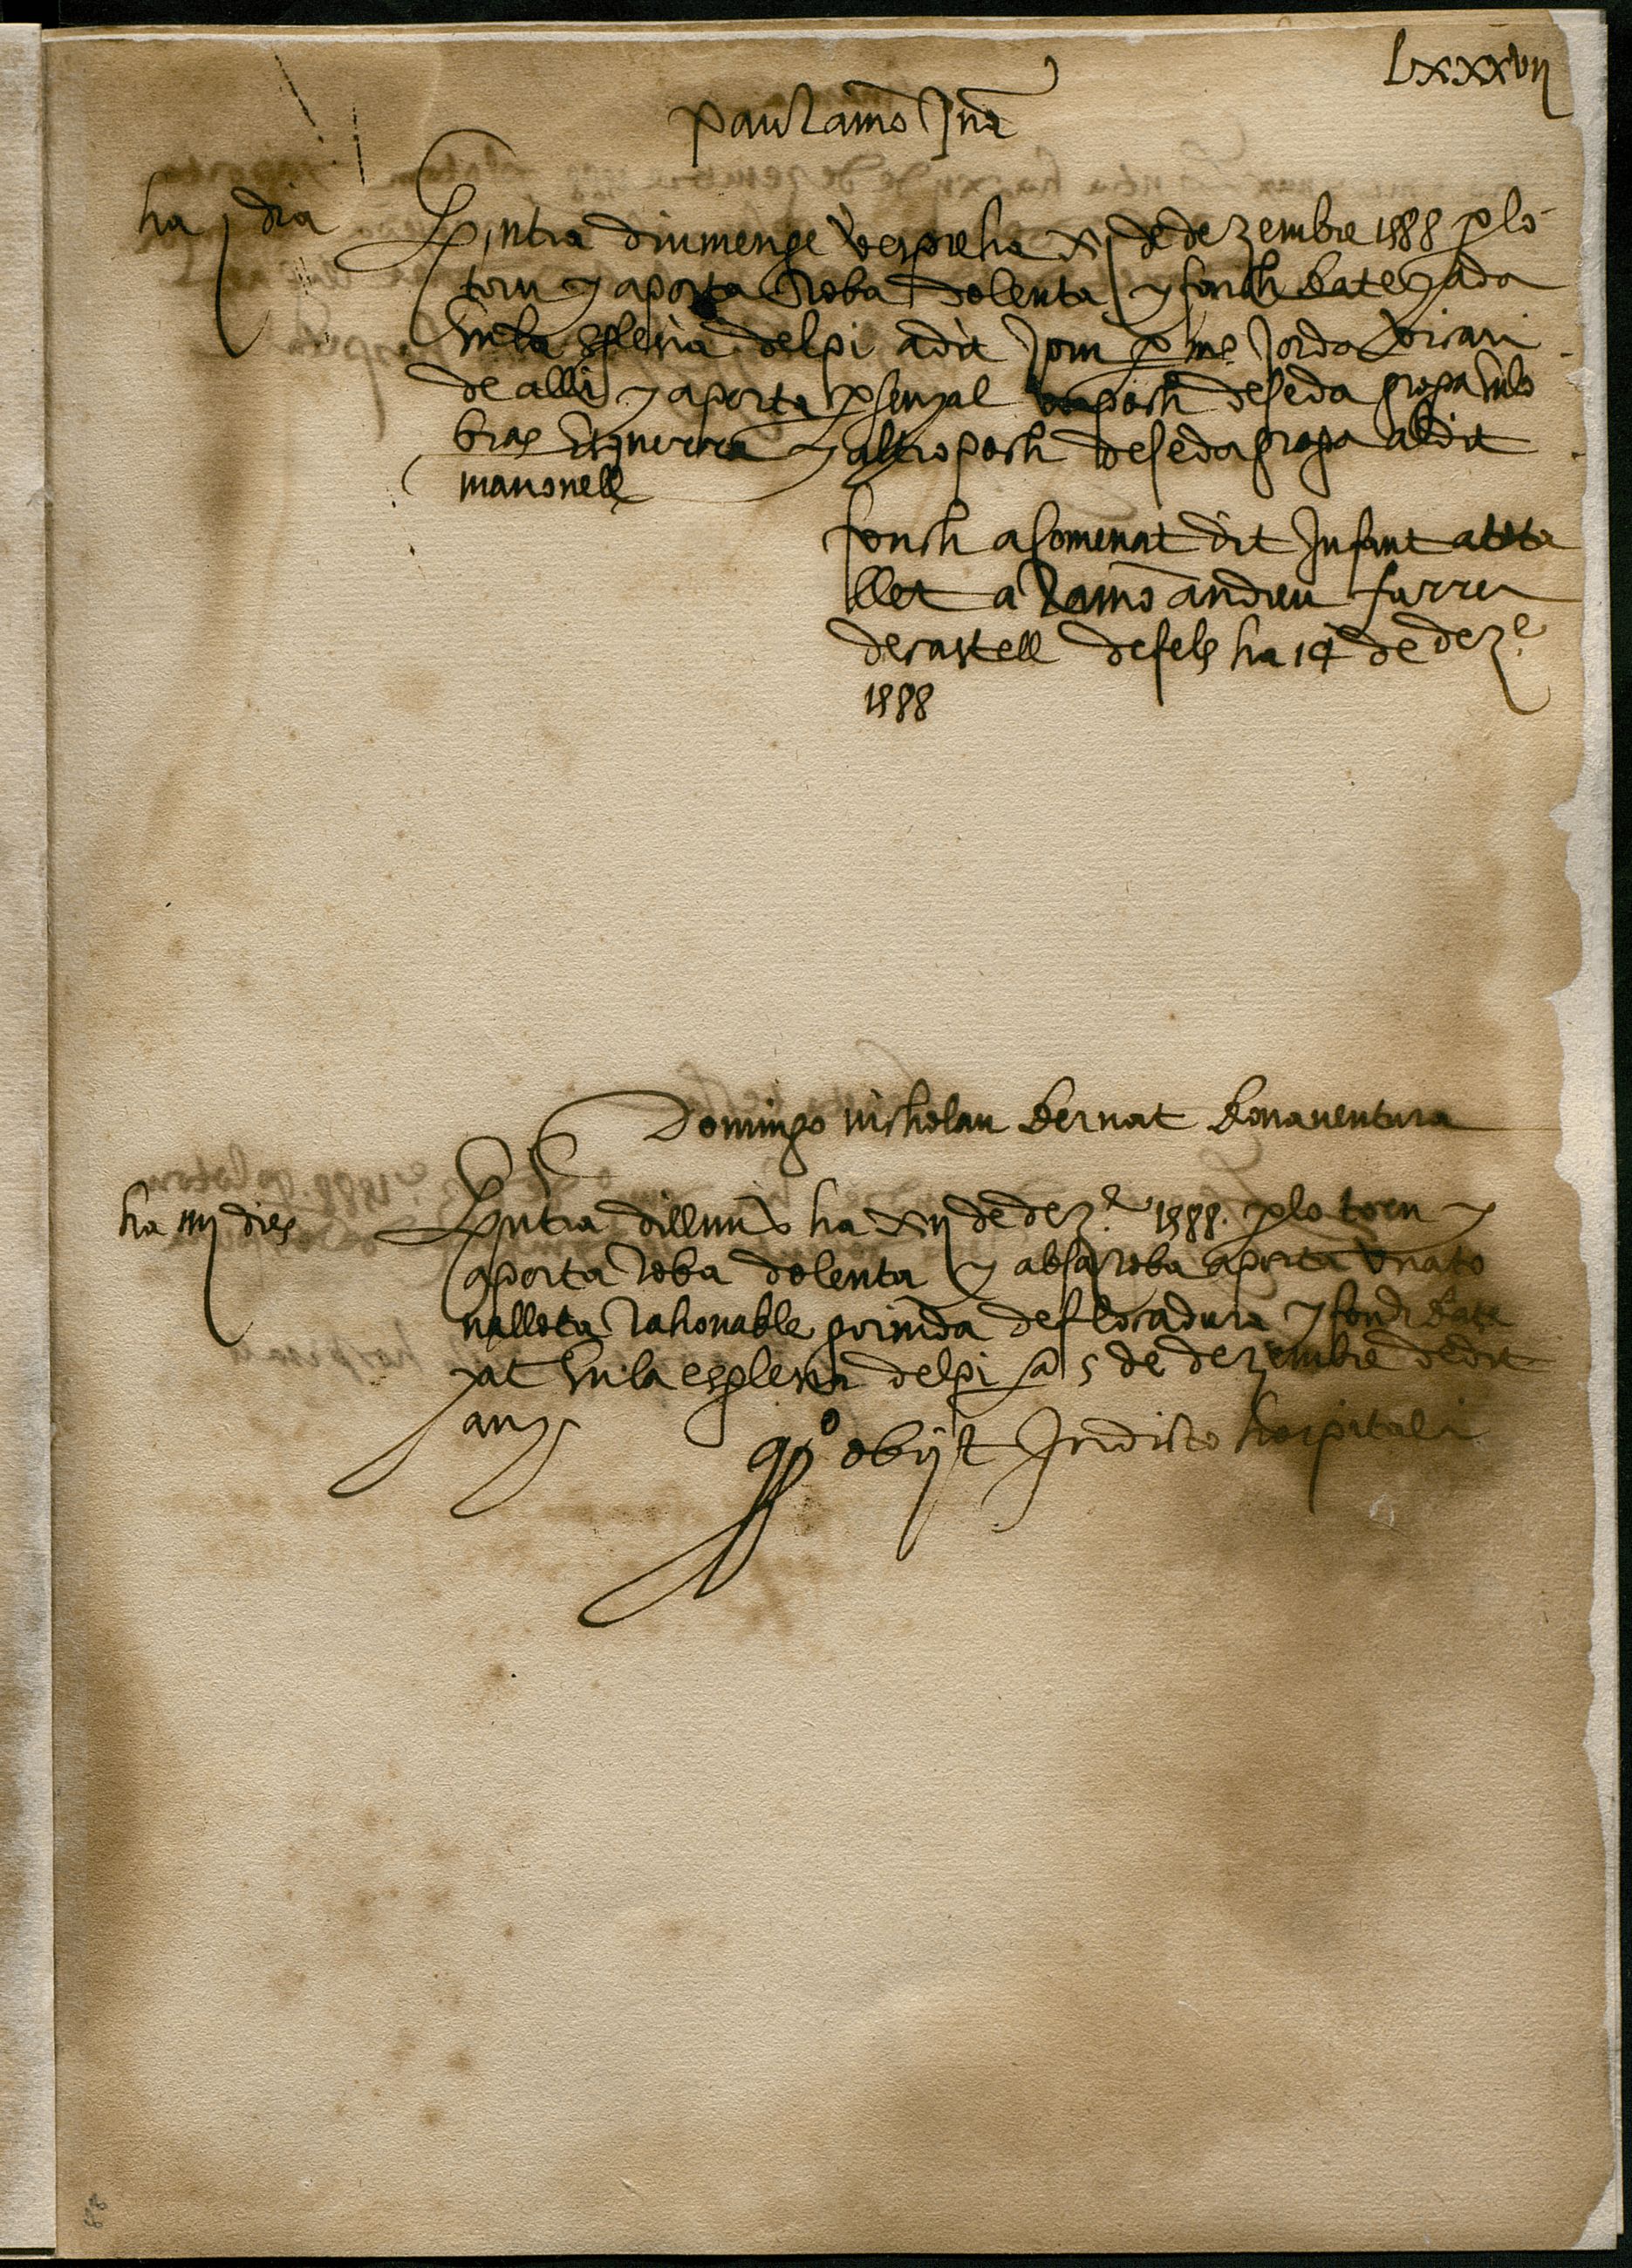 Lxxxvij
pau Ramo Jua
ha j dia
Entra diumenge vespre ha xj de dezembre 1588 plo
torn y aporta Roba dolenta y fonch bategada
en la esglesia del pi a dit jorn p me Jorda vicari
de alli y aporta p senyal un poch de seda groga en lo
bras esquerra y altro poch de seda groga al dit
manonell
fonch a comenat dit Infant a teta
llet a Ramo andreu farrer
de castell de fels ha 14 de deze
1588
Domingo nicholau bernat bonaventura
ha iiij dies
Entra dilluns ha xij de deze 1588 plo torn y
aporta roba dolenta y ab sa roba aporta una to
valleta rahonable guarnida de flocadura y fonch bate
yat en la esglesia del pi a 5 de dezembre de dit
any
obijt In dicto hospitali